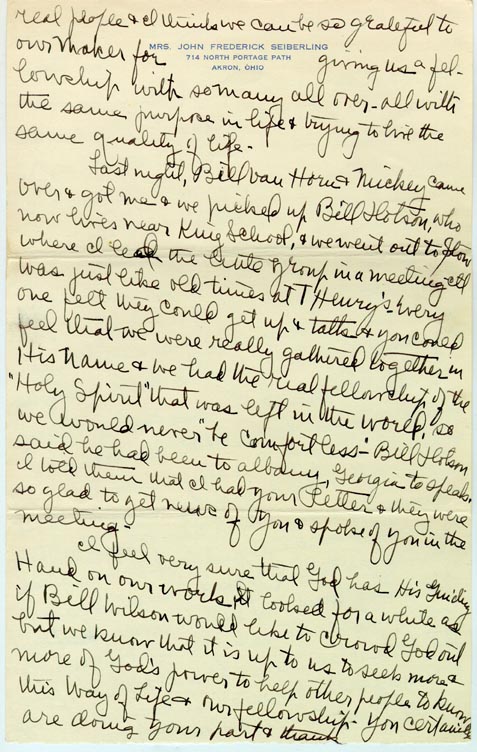 real people & I think we can be so grateful to
our Maker for giving us a fel-
MRS. JOHN FREDERICK SEIBERLING
714 NORTH PORTAGE PATH
AKRON, OHIO
lowship with so many all over - all with
the same purpose in life & trying to live the
same quality of life -
Last night, Bill Van Horn & Mickey came
over & got me & we picked up Bill Hotson, who
now lives near King School, & we went out to Stow
where I lead the little group in a meeting -
was just like old times at T Henry's - every
one felt they could get up & talk & you could
feel that we were really gathered together in
His Name & we had the real fellowship of the
"Holy Spirit" that was left in the world, so
we would never "be comfortless" - Bill Hotson
said he had been to Albany, Georgia to speak.
I told them that I had your letter & they were
so glad to get news of you & spoke of you in the
meeting -
I feel very sure that God has His Guiding
Hand on our work. It looked for a while as
if Bill Wilson would like to crowd God out
but we know that it is up to us to seek more &
more of God's power to help other people to know
this Way of Life & our fellowship - You certainly
are doing your part & thank